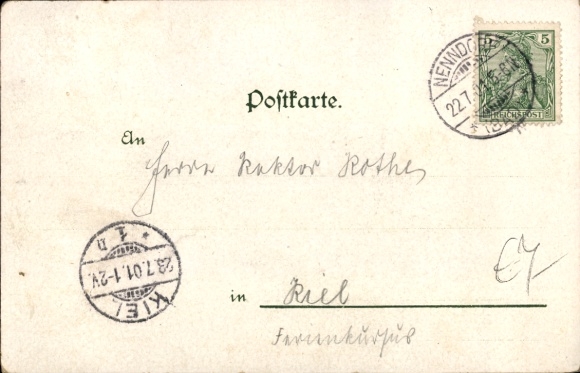 NENNDORF
22.7.
5
REICHSPOST
Postkarte.
An
Herrn Rektor Rothe
KIEL
23.7.01.1-2V.
* 1 D
in Kiel
Ferienkursus